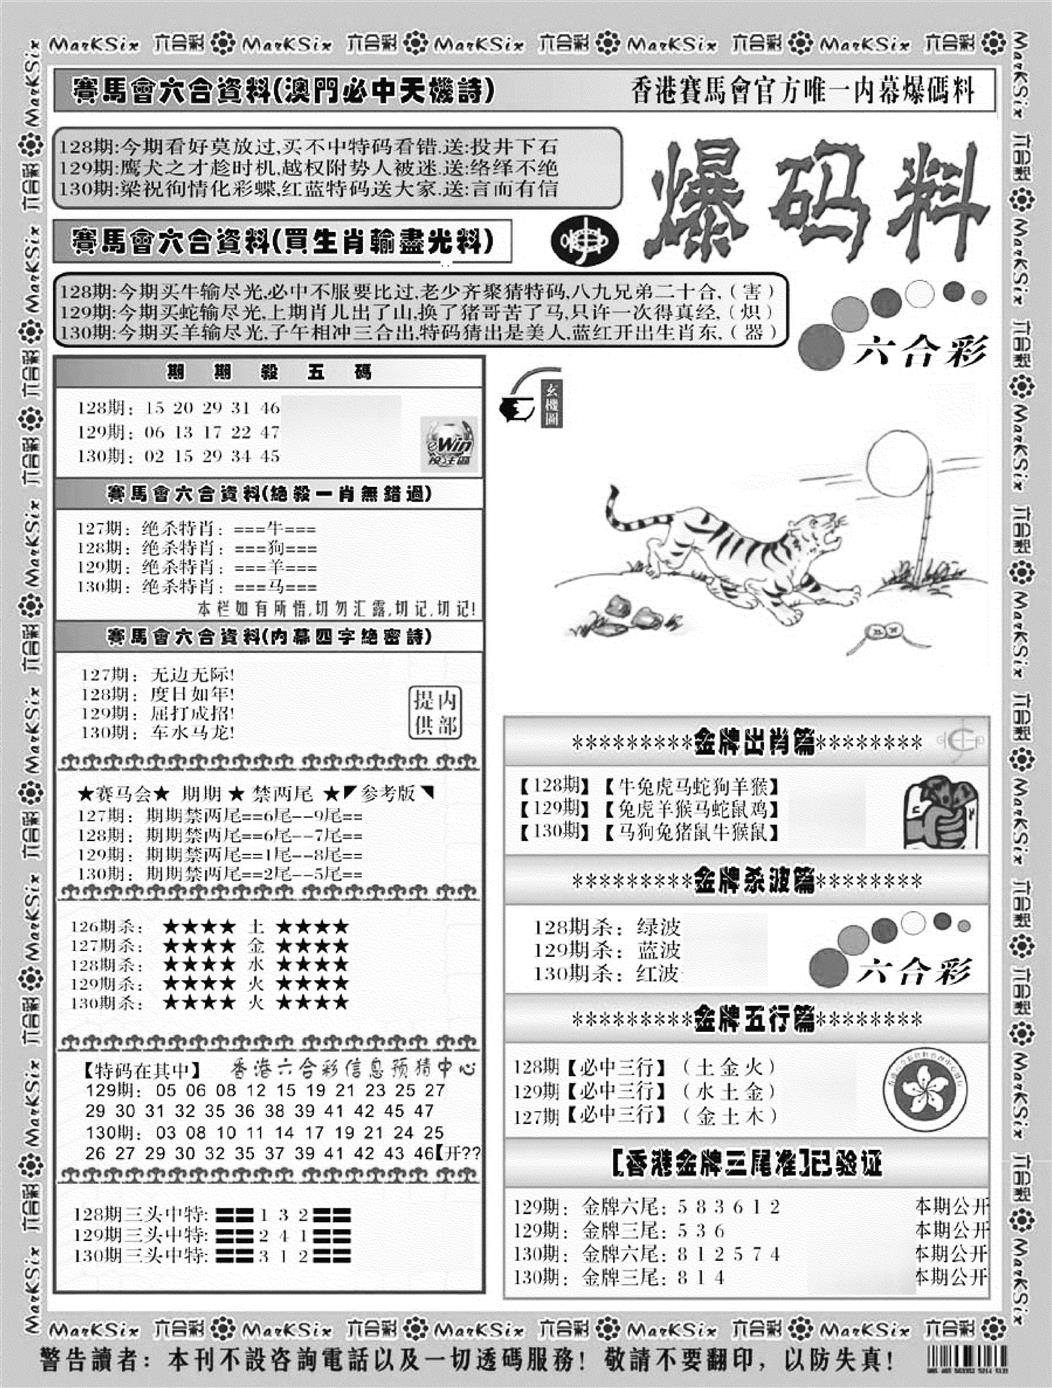 MarKSix 六合彩 MarKSix 六合彩 MarKSix 六合彩 MarKSix 六合彩 MarKSix 六合彩
賽馬會六合資料(澳門必中天機詩)
香港賽馬會官方唯一内幕爆碼料
128期:今期看好莫放过,买不中特码看错.送:投井下石
129期:鹰犬之才趁时机,越权附势人被迷.送:络绎不绝
130期:梁祝徇情化彩蝶,红蓝特码送大家.送:言而有信
爆码料
賽馬會六合資料(買生肖輸盡光料)
128期:今期买牛输尽光,必中不服要比过,老少齐聚猜特码,八九兄弟二十合,（害）
129期:今期买蛇输尽光,上期肖儿出了山,换了猪哥苦了马,只许一次得真经,（炽）
130期:今期买羊输尽光,子午相冲三合出,特码猜出是美人,蓝红开出生肖东,（器）
六合彩
期期殺五碼
128期: 15 20 29 31 46
129期: 06 13 17 22 47
130期: 02 15 29 34 45
eWin
投注區
玄機圖
賽馬會六合資料(絶殺一肖無錯過)
127期: 绝杀特肖: ===牛===
128期: 绝杀特肖: ===狗===
129期: 绝杀特肖: ===羊===
130期: 绝杀特肖: ===马===
本栏如有所悟,切勿汇露,切记,切记!
賽馬會六合資料(内幕四字絶密詩)
127期: 无边无际!
128期: 度日如年!
129期: 屈打成招!
130期: 车水马龙!
内部提供
★赛马会★ 期期 ★ 禁两尾 ★◤参考版◥
127期: 期期禁两尾==6尾--9尾==
128期: 期期禁两尾==6尾--7尾==
129期: 期期禁两尾==1尾--8尾==
130期: 期期禁两尾==2尾--5尾==
126期杀: ★★★★ 土 ★★★★
127期杀: ★★★★ 金 ★★★★
128期杀: ★★★★ 水 ★★★★
129期杀: ★★★★ 火 ★★★★
130期杀: ★★★★ 火 ★★★★
【特码在其中】 香港六合彩信息预猜中心
129期: 05 06 08 12 15 19 21 23 25 27
29 30 31 32 35 36 38 39 41 42 45 47
130期: 03 08 10 11 14 17 19 21 24 25
26 27 29 30 32 35 37 39 41 42 43 46【开??
128期三头中特: 〓〓1 3 2〓〓
129期三头中特: 〓〓2 4 1〓〓
130期三头中特: 〓〓3 1 2〓〓
*********金牌出肖篇********
【128期】【牛兔虎马蛇狗羊猴】
【129期】【兔虎羊猴马蛇鼠鸡】
【130期】【马狗兔猪鼠牛猴鼠】
*********金牌杀波篇********
128期杀: 绿波
129期杀: 蓝波
130期杀: 红波
六合彩
*********金牌五行篇********
128期【必中三行】（土金火）
129期【必中三行】（水土金）
127期【必中三行】（金土木）
[香港金牌三尾准]已验证
129期: 金牌六尾: 5 8 3 6 1 2 本期公开
129期: 金牌三尾: 5 3 6 本期公开
130期: 金牌六尾: 8 1 2 5 7 4 本期公开
130期: 金牌三尾: 8 1 4 本期公开
MarKSix 六合彩 MarKSix 六合彩 MarKSix 六合彩 MarKSix 六合彩 MarKSix 六合彩
警告讀者: 本刊不設咨詢電話以及一切透碼服務! 敬請不要翻印, 以防失真!